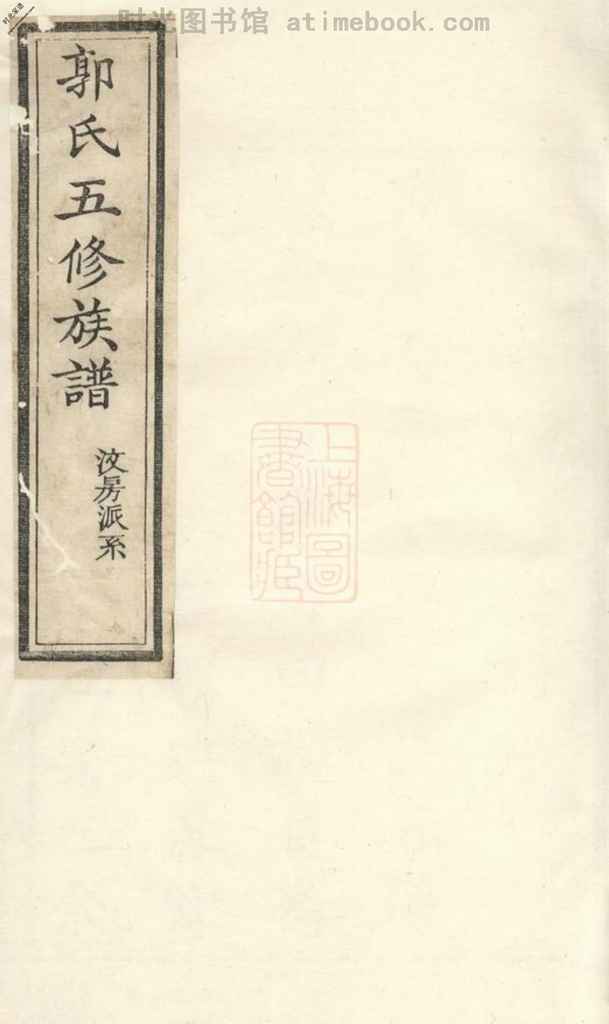 时光图书馆 atimebook.com
郭氏五修族譜
汶房派系
上海圖
書館藏